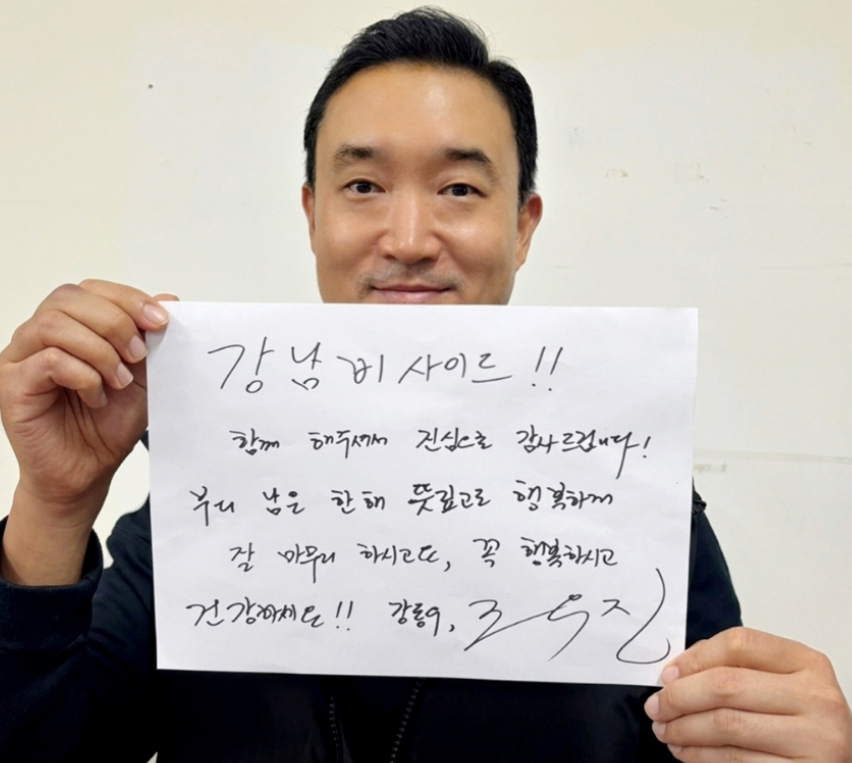 강남 비사이드!!
함께 해주셔서 진심으로 감사드립니다!
부디 남은 한해 뜻깊고로 행복하게
잘 마무리 하시고또, 꼭 행복하시고
건강하세요!! 강동우, 조우진